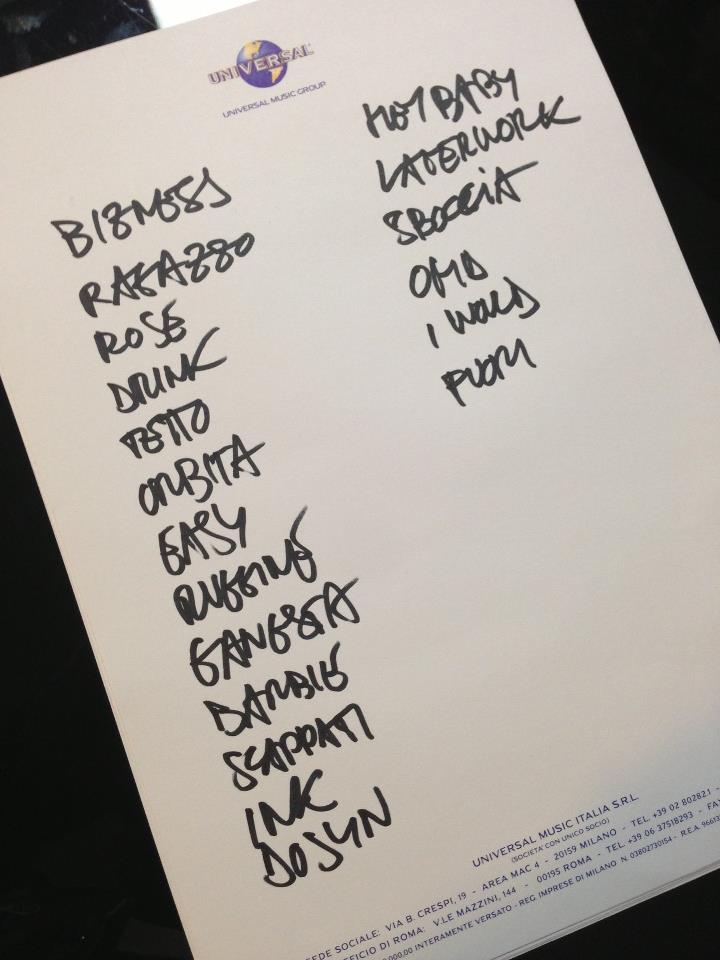 UNIVERSAL
UNIVERSAL MUSIC GROUP
BIZNESS
RAGAZZO
ROSE
DRINK
TETTO
ORBITA
EASY
RUGGINE
GANGSTA
BARBIE
SCAPPATI
INK
DOSYN
HEY BABY
LATERWORK
SBOCCIA
OMD
I WOULD
FUORI
UNIVERSAL MUSIC ITALIA S.R.L.
(SOCIETA' CON UNICO SOCIO)
SEDE SOCIALE: VIA B. CRESPI, 19 - AREA MAC 4 - 20159 MILANO - TEL. +39 02 80282.1 -
UFFICIO DI ROMA: V.LE MAZZINI, 144 - 00195 ROMA - TEL. +39 06 37518293 - FA
000,00 INTERAMENTE VERSATO - REG. IMPRESE DI MILANO N. 03802730154 - R.E.A. 9661